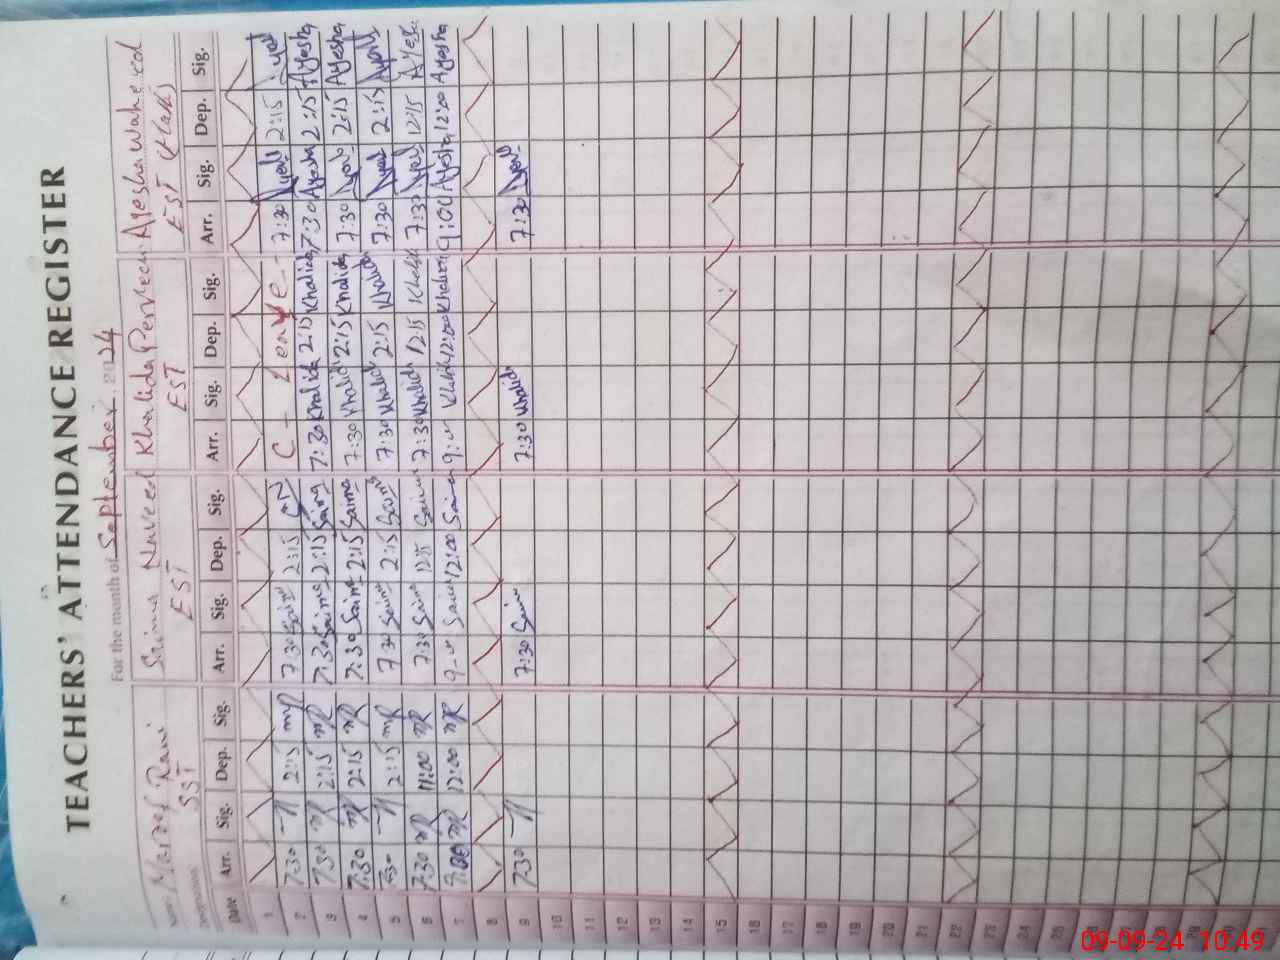 TEACHERS' ATTENDANCE REGISTER
For the month of September 2024
Name Marof Rani Saima Naveed Khalida Perveen Ayesha Waheed
SST EST EST EST
Date Arr. Sig. Dep. Sig. Arr. Sig. Dep. Sig. Arr. Sig. Dep. Sig. Arr. Sig. Dep. Sig.
1
2 7:30 2:15 7:30 Saima 2:15 C - Leave - 7:30 2:15
3 7:30 2:15 7:30 Saima 2:15 Saima 7:30 Khalida 2:15 Khalida 7:30 Ayesha 2:15 Ayesha
4 7:30 2:15 7:30 Saima 2:15 Saima 7:30 Khalida 2:15 Khalida 7:30 2:15 Ayesha
5 7:30 2:15 7:30 Saima 2:15 Saima 7:30 Khalida 2:15 Khalida 7:30 2:15
6 7:30 11:00 7:30 Saima 12:15 Saima 7:30 Khalida 12:15 Khalida 7:30 12:15 Ayesha
7 9:00 12:00 Saima 12:00 Saima 9:00 Khalida 12:00 Khalida 9:00 Ayesha 12:00 Ayesha
8
9 7:30 7:30 Saima 7:30 Khalida 7:30
10
11
12
13
14
15
16
17
18
19
20
21
22
23
24
25
26
09-09-24 10:49